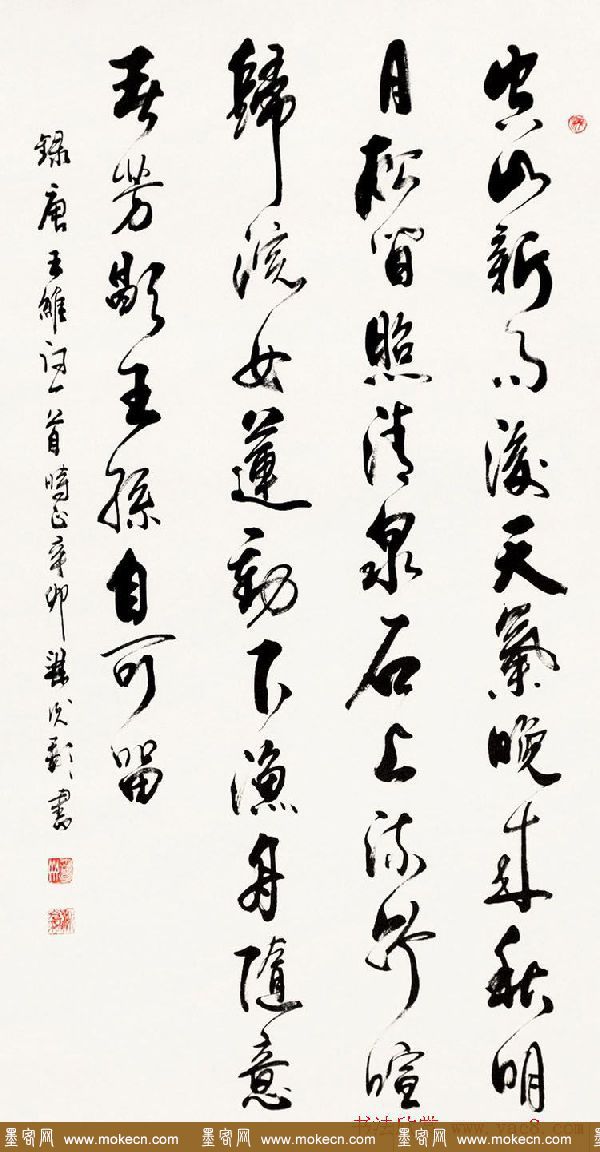 空山新雨後天氣晚来秋明
月松間照清泉石上流竹喧
歸浣女蓮動下漁舟隨意
春芳歇王孫自可留
錄唐王維詩一首時正辛卯
書
书法欣赏 www.yac8.com
墨客网 www.mokecn.com 墨客网 www.mokecn.com 墨客网 www.mokecn.com